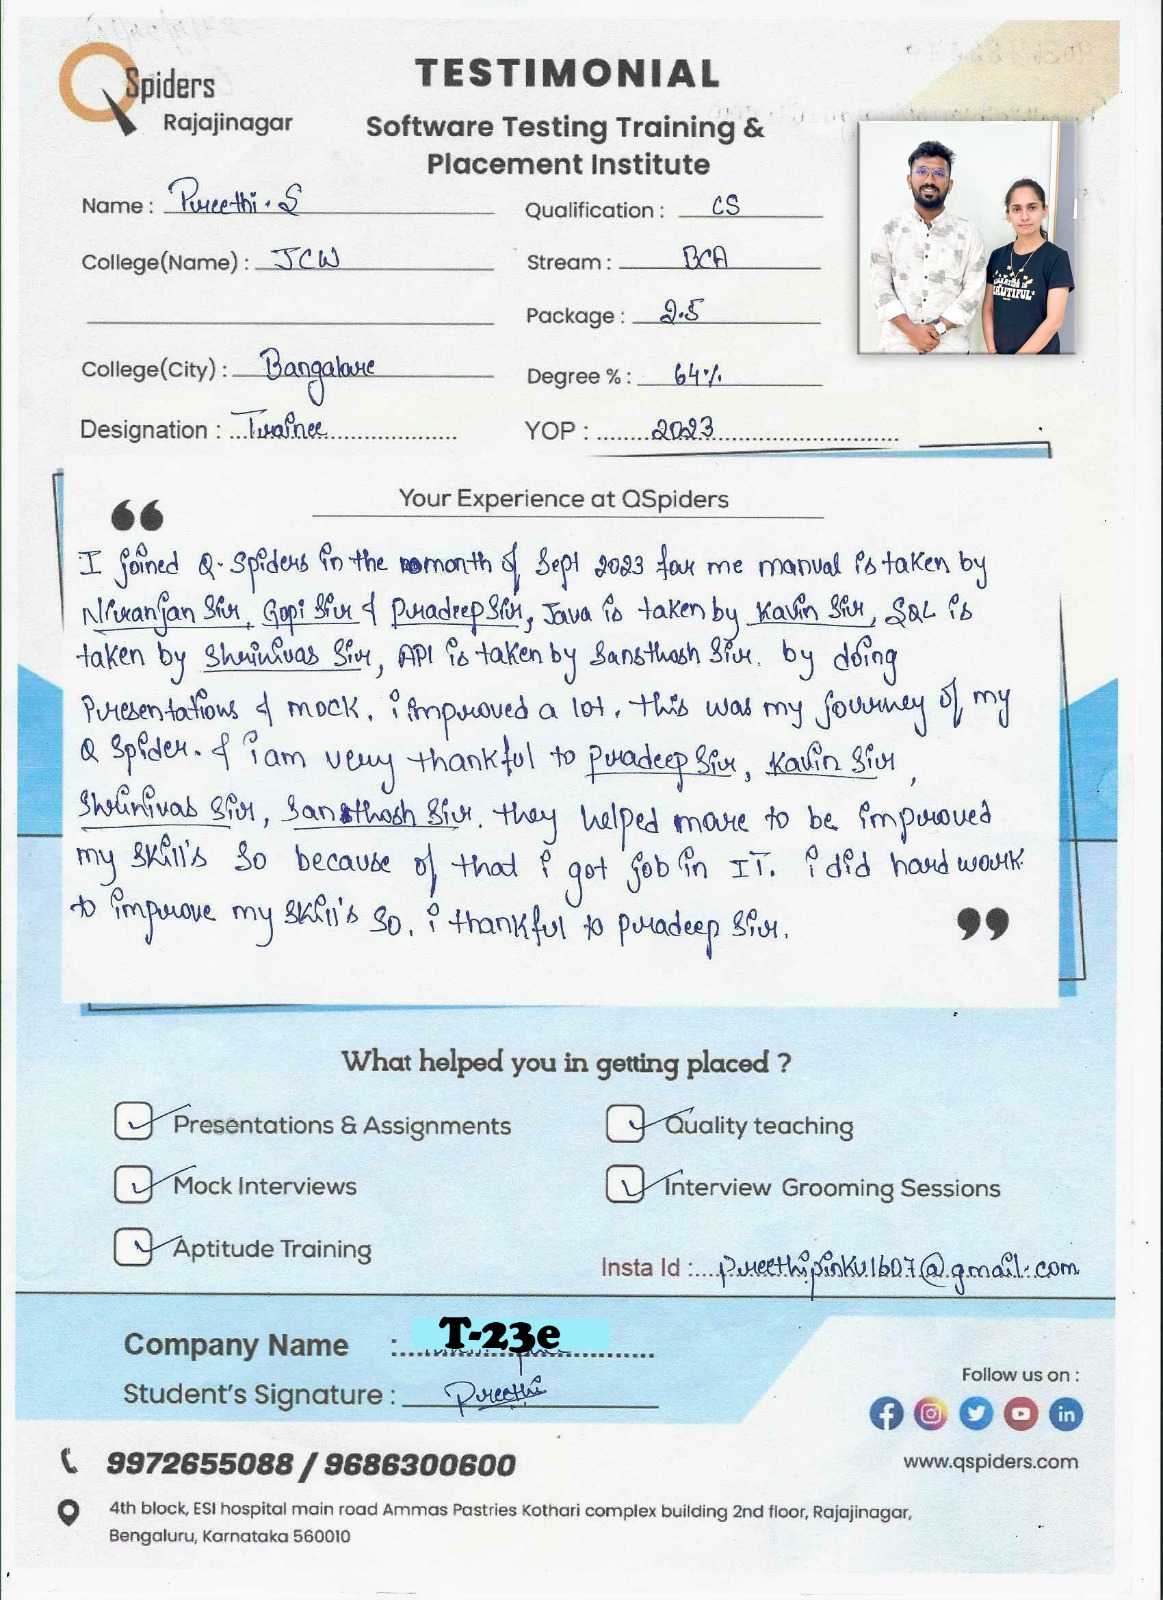 QSpiders
Rajajinagar
TESTIMONIAL
Software Testing Training &
Placement Institute
Name : Preethi . S
Qualification : CS
College(Name) : JCW
Stream : BCA
Package : 2.5
College(City) : Bangalore
Degree % : 64%
Designation : Trainee
YOP : 2023
Your Experience at QSpiders
I joined Q-Spiders in the month of Sept 2023 for me manual is taken by
Niranjan Sir, Gopi Sir & Pradeep Sir, Java is taken by Kavin Sir, SQL is
taken by Shrinivas Sir, API is taken by Sansthosh Sir. by doing
Presentations & mock. i improved a lot. this was my journey of my
Q Spider. & i am very thankful to Pradeep Sir, Kavin Sir,
Shrinivas Sir, Sansthosh Sir. they helped more to be improved
my skill's so because of that i got job in IT. i did hard work
to improve my skill's so. i thankful to Pradeep Sir.
What helped you in getting placed ?
Presentations & Assignments
Quality teaching
Mock Interviews
Interview Grooming Sessions
Aptitude Training
Insta Id : preethipinku1607@gmail.com
Company Name : T-23e
Student's Signature : Preethi
Follow us on :
9972655088 / 9686300600
www.qspiders.com
4th block, ESI hospital main road Ammas Pastries Kothari complex building 2nd floor, Rajajinagar,
Bengaluru, Karnataka 560010